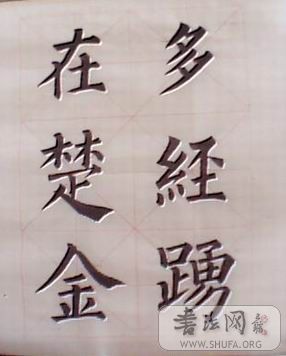 多經踴
在楚金
書法网
WWW.SHUFA.ORG